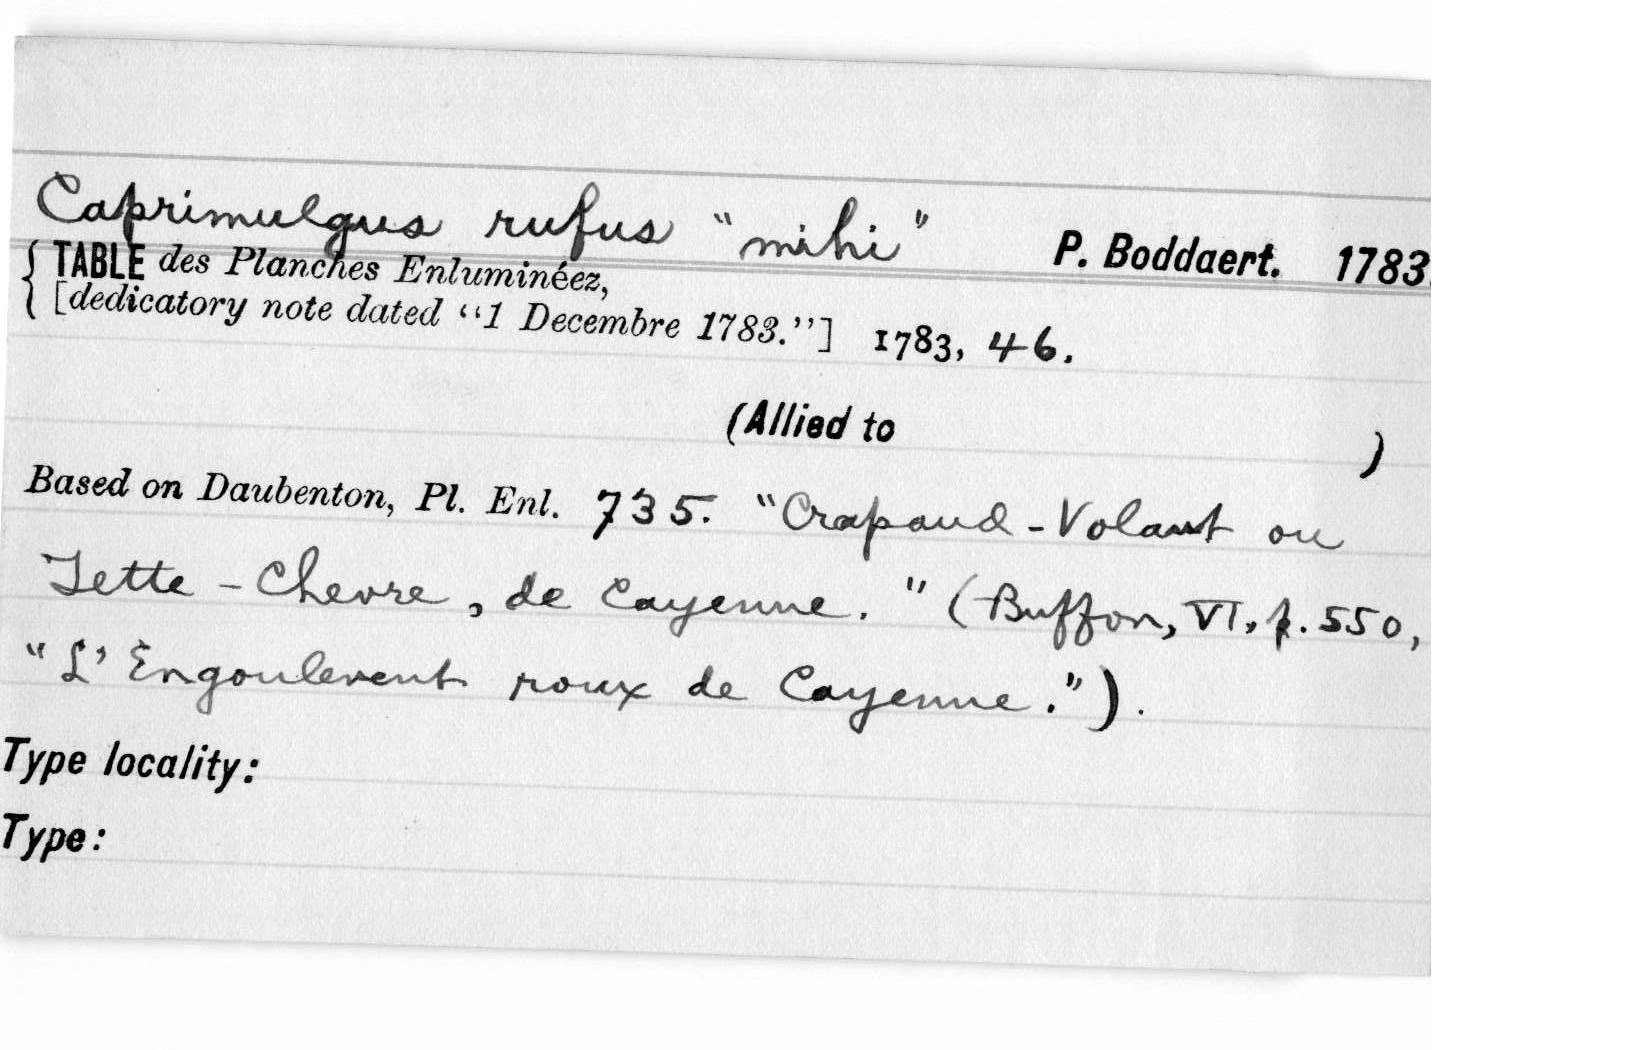 Caprimulgus rufus "mihi" P. Boddaert. 1783.
TABLE des Planches Enluminéez,
[dedicatory note dated "1 Decembre 1783."] 1783, 46.
(Allied to )
Based on Daubenton, Pl. Enl. 735. "Crapaud-Volant ou
Tette-Chevre, de Cayenne." (Buffon, VI, p. 550,
"L'Engoulevent roux de Cayenne.").
Type locality:
Type: